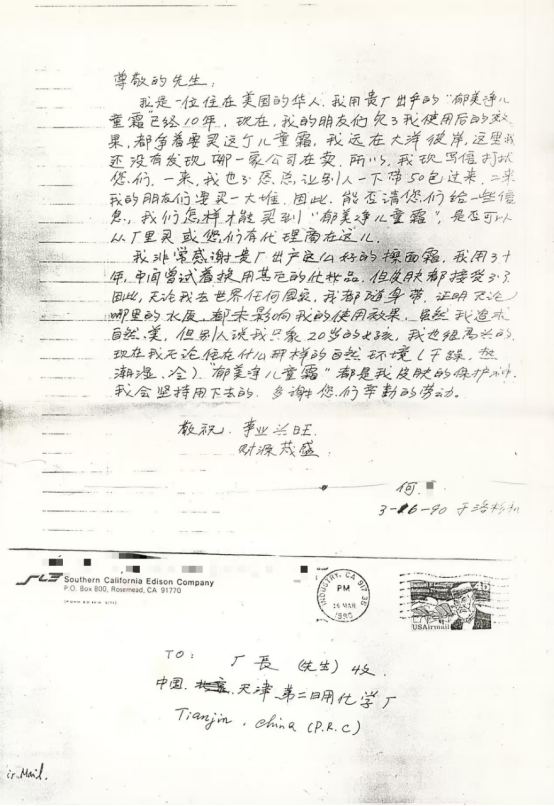 尊敬的先生:
我是一位住在美国的华人,我用贵厂出产的"郁美净儿
童霜"已经10年,现在,我的朋友们欠了我使用后的效
果,都争着要买这个儿童霜,我远在大洋彼岸,这里我
还没有发现哪一家公司在卖,所以,我现写信打扰
您们,一来,我也不愿总让别人一下带50包过来,二来
我的朋友们要买一大堆.因此,能否请您们给一些信
息,我们怎样才能买到"郁美净儿童霜",是否可以
从厂里买或您们有代理商在这儿.
我非常感谢贵厂出产这么好的擦面霜,我用了十
年,中间曾试着换用其它的化妆品,但皮肤都接受不了
因此,无论我去世界任何国家,我都随身带,证明无论
哪里的水质,都未影响我的使用效果,虽然我追求
自然.美,但别人说我只象20岁的女孩,我也很高兴的.
现在我无论住在什么那样的自然环境(干躁,热
潮湿,冷)."郁美净儿童霜"都是我皮肤的保护神.
我会坚持用下去的.多谢您们辛勤的劳动。
敬祝.事业兴旺.
财源茂盛.
何.
3-16-90 于洛杉矶
Southern California Edison Company
P.O. Box 800, Rosemead, CA 91770
INDUSTRY, CA 917
PM
16 MAR
1990
USAirmail
TO: 厂長 (先生) 收.
中国.天津第二日用化学厂
Tianjin, China (P.R.C)
ir Mail.